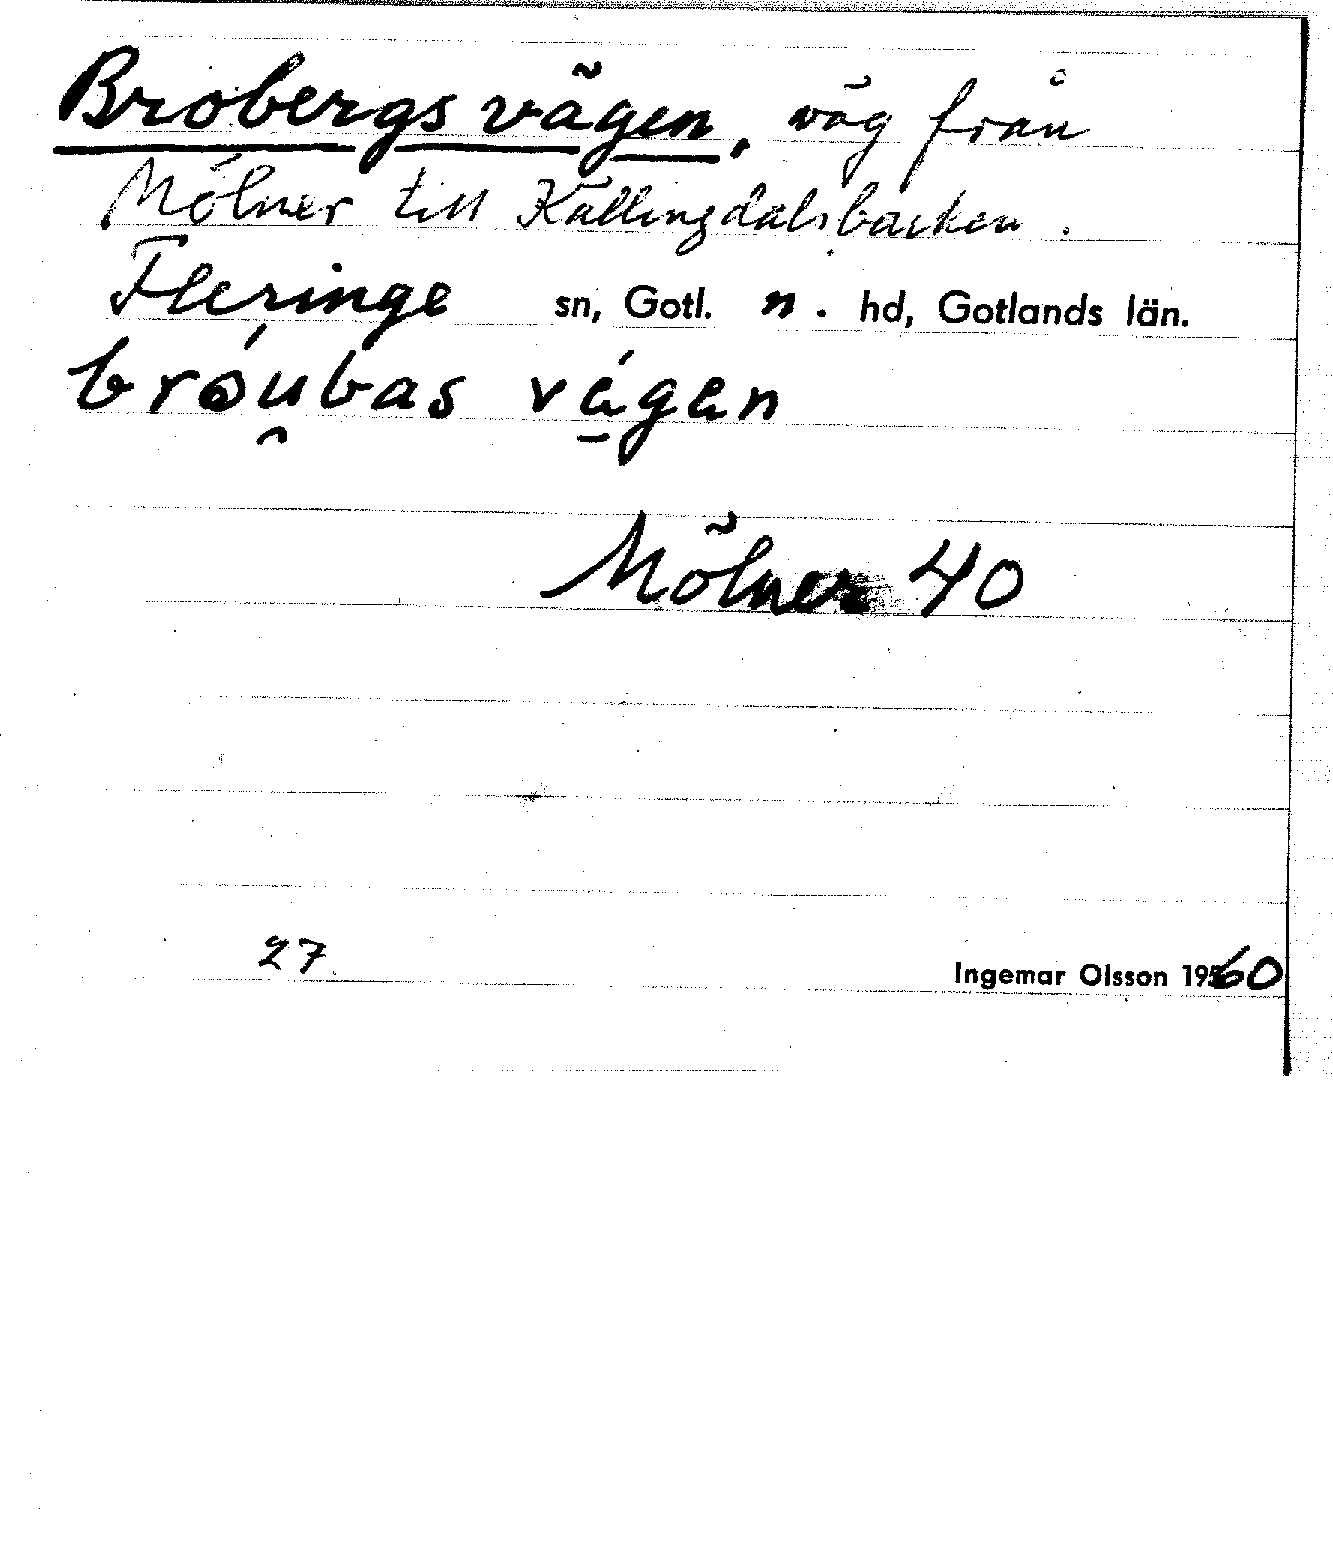 Brobergs vägen, väg från
Mölner till Källingdalsbacken.
Fleringe sn, Gotl. n. hd, Gotlands län.
brɷu̯bas vé̠gɐn
Mölner 40
27
Ingemar Olsson 1960